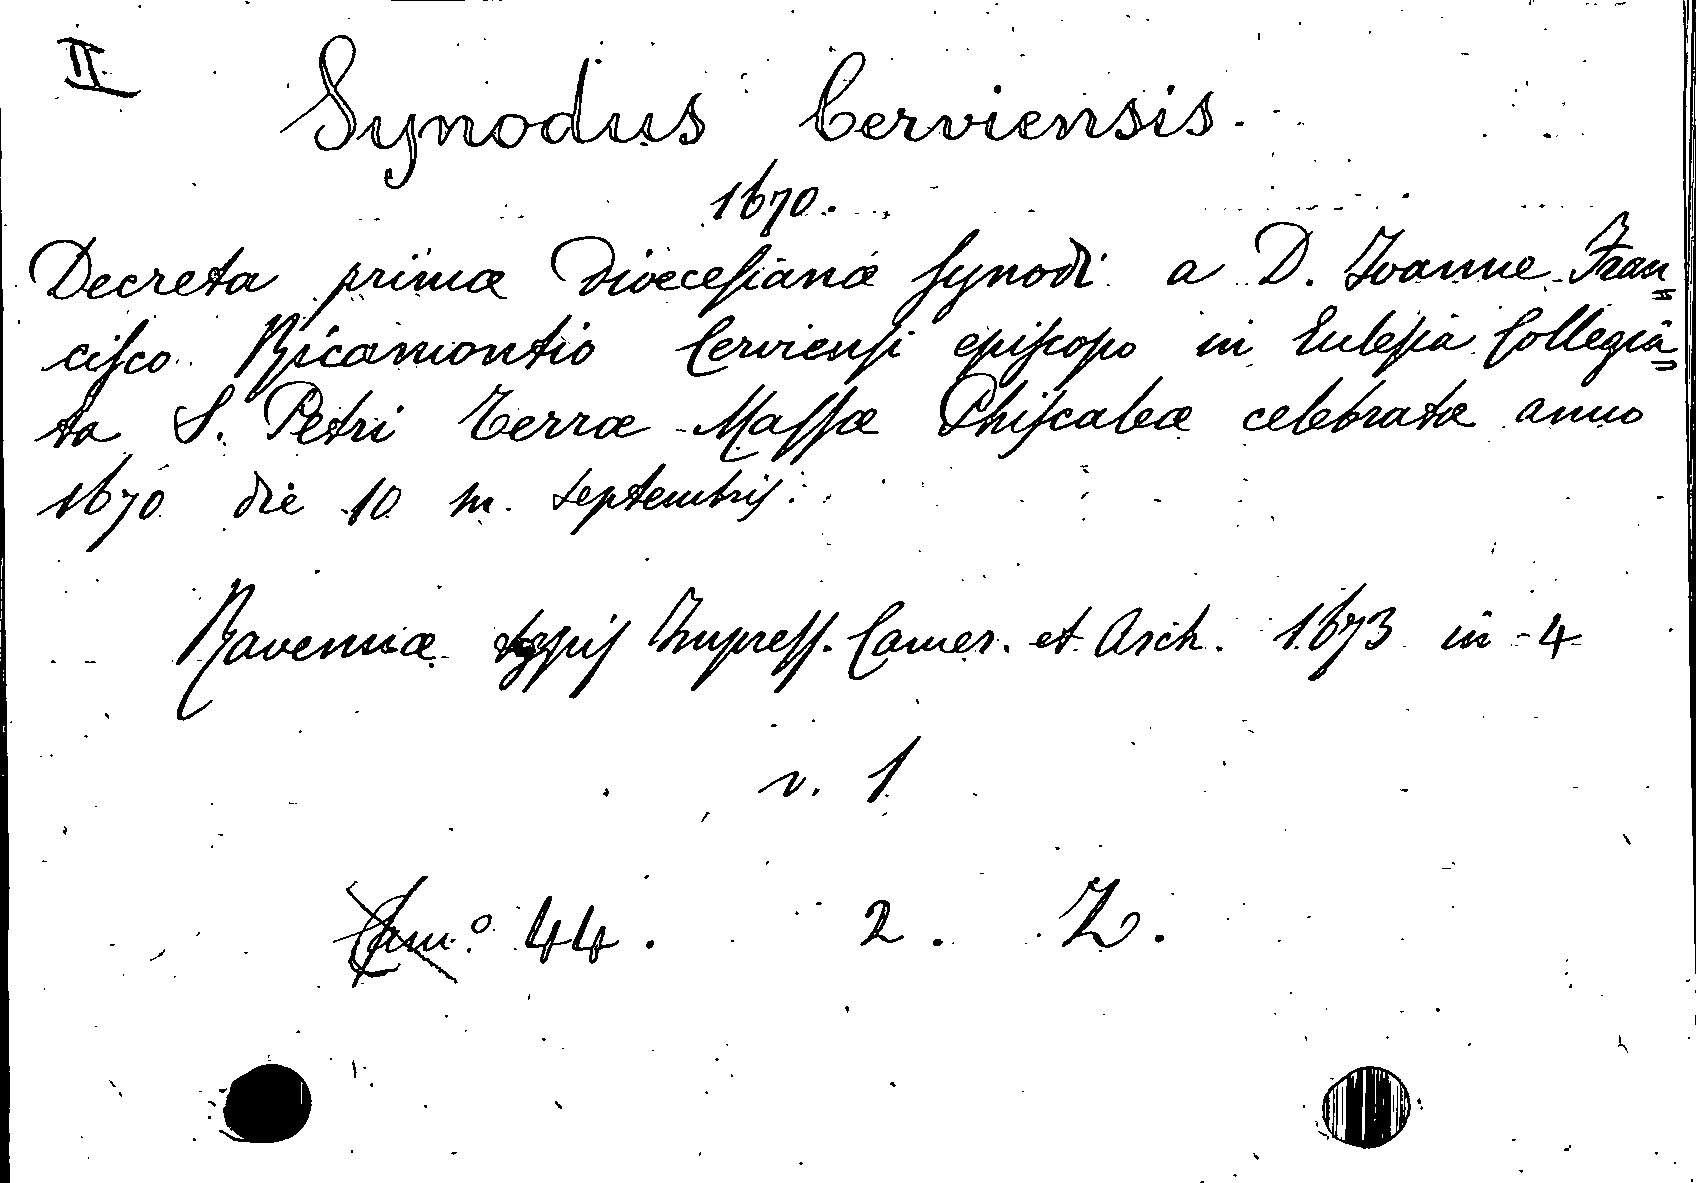 II
Synodus Cerviensis.
1670.
Decreta primæ Dioecesianæ Synodi a D. Ioanne Fran=
cisco Ricamontio Cerviensi episcopo in Eclesia Collegia=
ta S. Petri Terræ Massæ Phiscaleæ celebratæ anno
1670 die 10 m. septembris.
Ravennæ typis Impress. Camer. et Arch. 1673 in-4
v. 1
44. 2. Z.